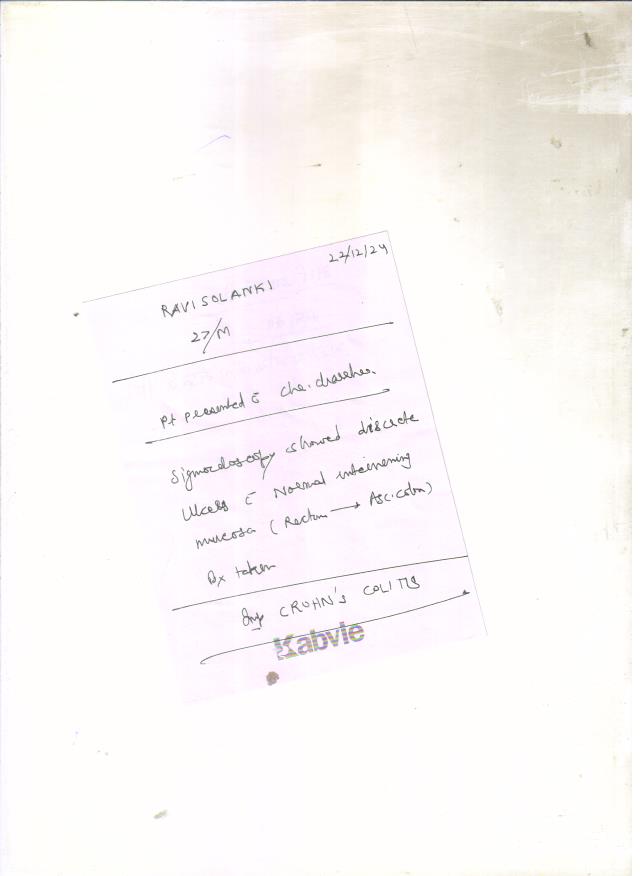 22/12/24
RAVI SOLANKI
27/M
Pt presented c̄ chr. diarrhea.
Sigmoidoscopy showed discrete
Ulcers c̄ Normal intervening
mucosa (Rectum → Asc. colon)
Bx taken
Imp CROHN'S COLITIS
Kabvie